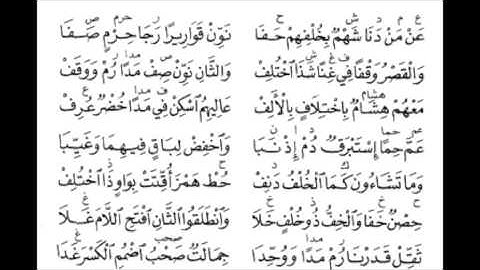 عَنْ مَنْ دَنَا شَهْمٌ بِخُلْفِهِمْ حَفَا نَوِّنْ قَوَارِيرًا رَجَا حِرْمٍ صَفَا
وَالْقَصْرُ وَقْفًا فِي غِنًا شَذَا ٱخْتُلِفْ وَالثَّانِ نَوِّنْ صِفْ مَدًا رُمْ وَوَقَفْ
مَعْهُمْ هِشَامٌ بِاخْتِلَافٍ بِالْأَلِفْ عَالِيهِمُ ٱسْكِنْ فِي مَدًا خُضْرٌ عُرِفْ
عَمَّ حِمًا إِسْتَبْرَقٌ دُمْ إِذْ نَبَا وَٱخْفِضْ لِبَاقٍ فِيهِمَا وَغَيِّبَا
وَمَا تَشَاءُونَ كَمَا ٱلْخُلْفُ دَنِفْ حُطْ هَمْزَ أُقِّتَتْ بِوَاوٍ ذَا ٱخْتُلِفْ
حِصْنٌ خَفَا وَٱلْخِفُّ ذُو خُلْفٍ خَلَا وَٱنْطَلَقُوا ٱلثَّانِ ٱفْتَحِ ٱللَّامَ غَلَا
ثَقِّلْ قَدَرْنَا رُمْ مَدًا وَوَحِّدَا جِمَالَتٌ صَحْبٌ ٱضْمُمِ ٱلْكَسْرَ غَدَا